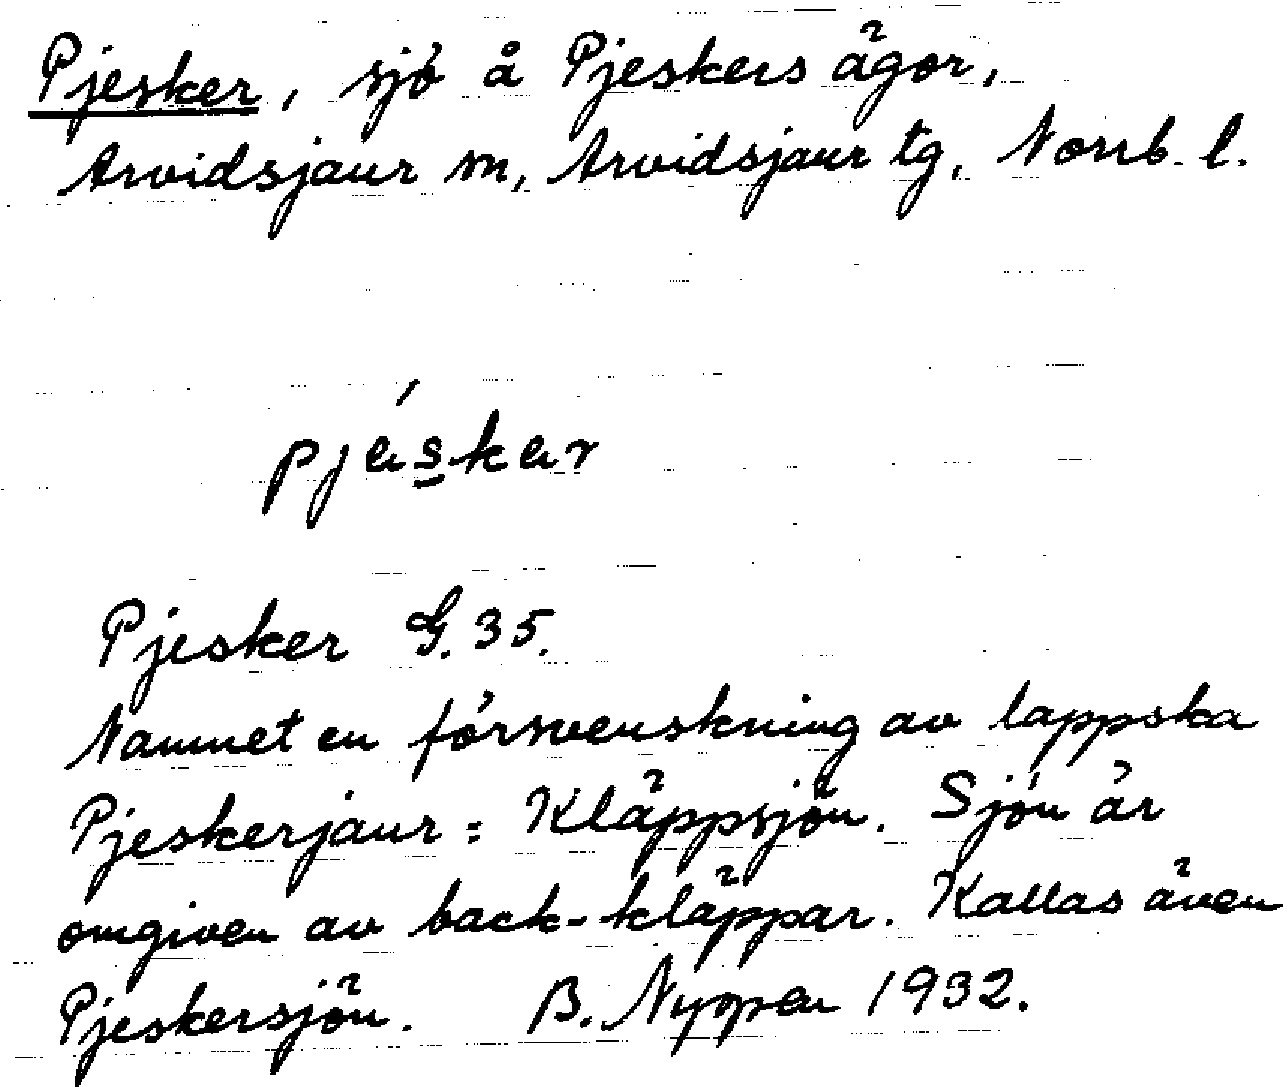 Pjesker, sjö å Pjeskers ägor,
Arvidsjaur sn, Arvidsjaur tg, Norrb. l.
pjésker
Pjesker G. 35.
Namnet en försvenskning av lappska
Pjeskerjaur = Kläppsjön. Sjön är
omgiven av back-kläppar. Kallas även
Pjeskersjön. B. Nyman 1932.